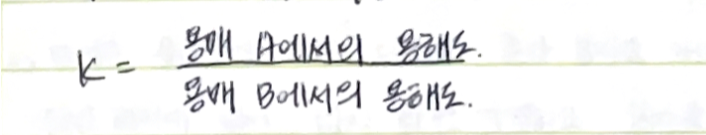 K = 용매 A에서의 용해도.
용매 B에서의 용해도.